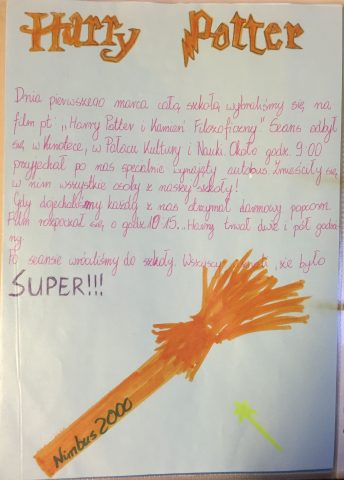 Harry Potter
Dnia pierwszego marca całą szkołą wybraliśmy się na
film pt: „Harry Potter i Kamień Filozoficzny" Seans odbył
się w Kinotece, w Pałacu Kultury i Nauki. Około godz. 9:00
przyjechał po nas specjalnie wynajęty autobus. Zmieściły się
w nim wszystkie osoby z naszej szkoły!
Gdy dojechaliśmy każdy z nas otrzymał darmowy popcorn.
Film rozpoczął się o godz. 10.15.. Harry trwał dwie i pół godzi
ny
Po seansie wróciliśmy do szkoły. Wszyscy że było
SUPER!!!
Nimbus 2000